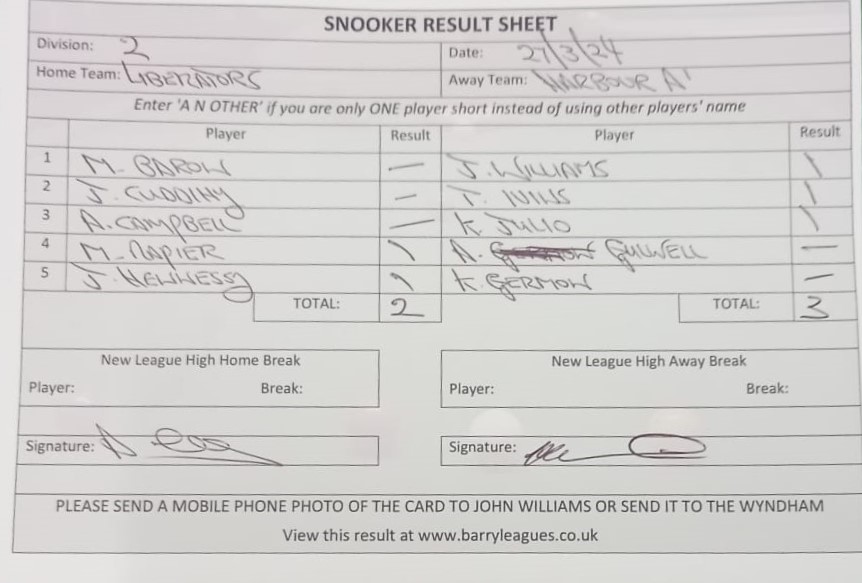 SNOOKER RESULT SHEET
Division: 2 Date: 27/3/24
Home Team: LIBERATORS Away Team: HARBOUR 'A'
Enter 'A N OTHER' if you are only ONE player short instead of using other players' name
Player Result Player Result
1 M. BAROW — J. WILLIAMS 1
2 J. CUDDIHY — T. IVINS 1
3 A. CAMPBELL — K. JULIO 1
4 M. NAPIER 1 A. GULWELL —
5 J. HENNESSY 1 K. GERMON —
TOTAL: 2 TOTAL: 3
New League High Home Break New League High Away Break
Player: Break: Player: Break:
Signature: Signature:
PLEASE SEND A MOBILE PHONE PHOTO OF THE CARD TO JOHN WILLIAMS OR SEND IT TO THE WYNDHAM
View this result at www.barryleagues.co.uk